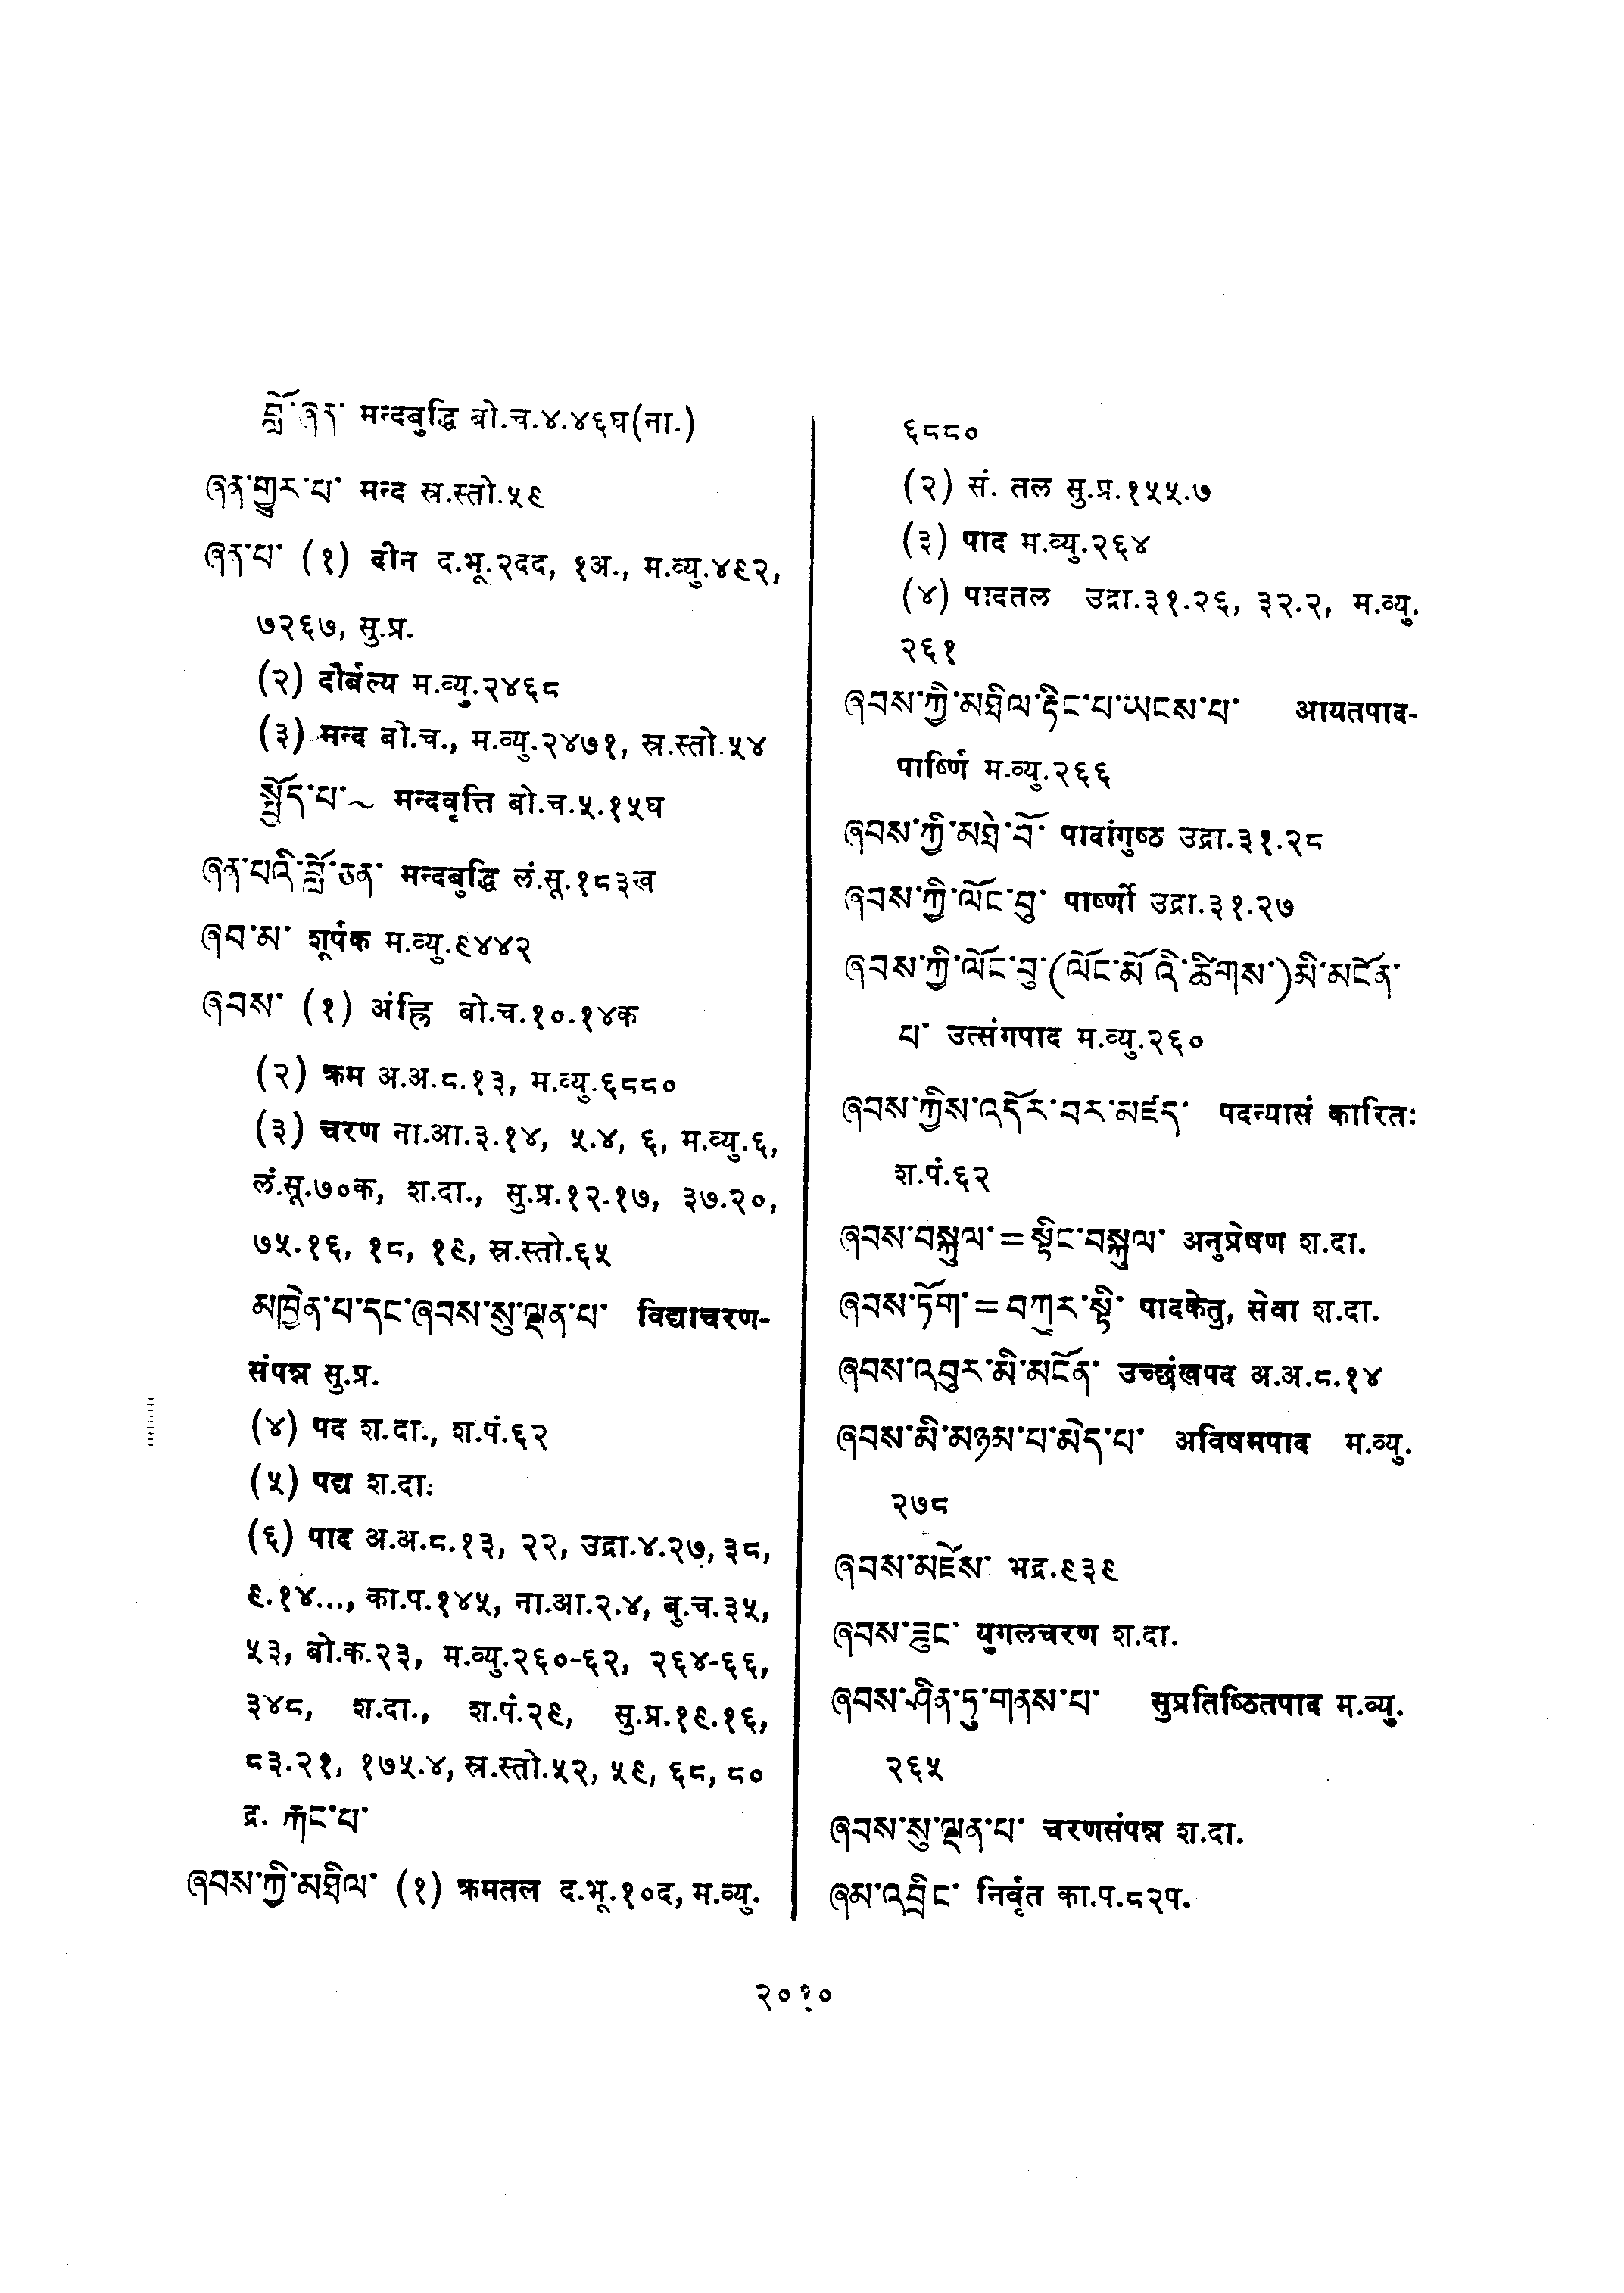 བློ་ཞན་ मन्दबुद्धि बो.च.४.४६घ(ना.)
ཞན་གྱུར་པ་ मन्द स्र.स्तो.५९
ཞན་པ་ (१) दीन द.भू.२८द, १अ., म.व्यु.४९२,
७२६७, सु.प्र.
(२) दौर्बल्य म.व्यु.२४६८
(३) मन्द बो.च., म.व्यु.२४७१, स्र.स्तो.५४
སྤྱོད་པ་~ मन्दवृत्ति बो.च.५.१५घ
ཞན་པའི་བློ་ཅན་ मन्दबुद्धि लं.सू.१८३ख
ཞབ་མ་ शूर्पक म.व्यु.९४४२
ཞབས་ (१) अंह्रि बो.च.१०.१४क
(२) क्रम अ.अ.८.१३, म.व्यु.६८८०
(३) चरण ना.आ.३.१४, ५.४, ६, म.व्यु.६,
लं.सू.७०क, श.दा., सु.प्र.१२.१७, ३७.२०,
७५.१६, १८, १९, स्र.स्तो.६५
མཁྱེན་པ་དང་ཞབས་སུ་ལྡན་པ་ विद्याचरण-
संपन्न सु.प्र.
(४) पद श.दा., श.पं.६२
(५) पद्य श.दा:
(६) पाद अ.अ.८.१३, २२, उद्रा.४.२७, ३८,
९.१४..., का.प.१४५, ना.आ.२.४, बु.च.३५,
५३, बो.क.२३, म.व्यु.२६०-६२, २६४-६६,
३४८, श.दा., श.पं.२९, सु.प्र.१९.१६,
८३.२१, १७५.४, स्र.स्तो.५२, ५९, ६८, ८०
द्र. རྐང་པ་
ཞབས་ཀྱི་མཐིལ་ (१) क्रमतल द.भू.१०द, म.व्यु.
६८८०
(२) सं. तल सु.प्र.१५५.७
(३) पाद म.व्यु.२६४
(४) पादतल उद्रा.३१.२६, ३२.२, म.व्यु.
२६१
ཞབས་ཀྱི་མཐིལ་རྟིང་པ་ཡངས་པ་ आयतपाद-
पार्ष्णि म.व्यु.२६६
ཞབས་ཀྱི་མཐེ་བོ་ पादांगुष्ठ उद्रा.३१.२८
ཞབས་ཀྱི་ལོང་བུ་ पार्ष्णी उद्रा.३१.२७
ཞབས་ཀྱི་ལོང་བུ་(ལོང་མོ་འི་ཚིགས་)མི་མངོན་
པ་ उत्संगपाद म.व्यु.२६०
ཞབས་ཀྱིས་འདོར་བར་མཛད་ पदन्यासं कारितः
श.पं.६२
ཞབས་བསྐུལ་=སྟིང་བསྐུལ་ अनुप्रेषण श.दा.
ཞབས་ཏོག་=བཀུར་སྟི་ पादकेतु, सेवा श.दा.
ཞབས་འབུར་མི་མངོན་ उच्छंखपद अ.अ.८.१४
ཞབས་མི་མཉམ་པ་མེད་པ་ अविषमपाद म.व्यु.
२७८
ཞབས་མཛེས་ भद्र.९३९
ཞབས་ཟུང་ युगलचरण श.दा.
ཞབས་ཤིན་ཏུ་གནས་པ་ सुप्रतिष्ठितपाद म.व्यु.
२६५
ཞབས་སུ་ལྡན་པ་ चरणसंपन्न श.दा.
ཞམ་འབྲིང་ निर्वृत का.प.८२प.
२०१०